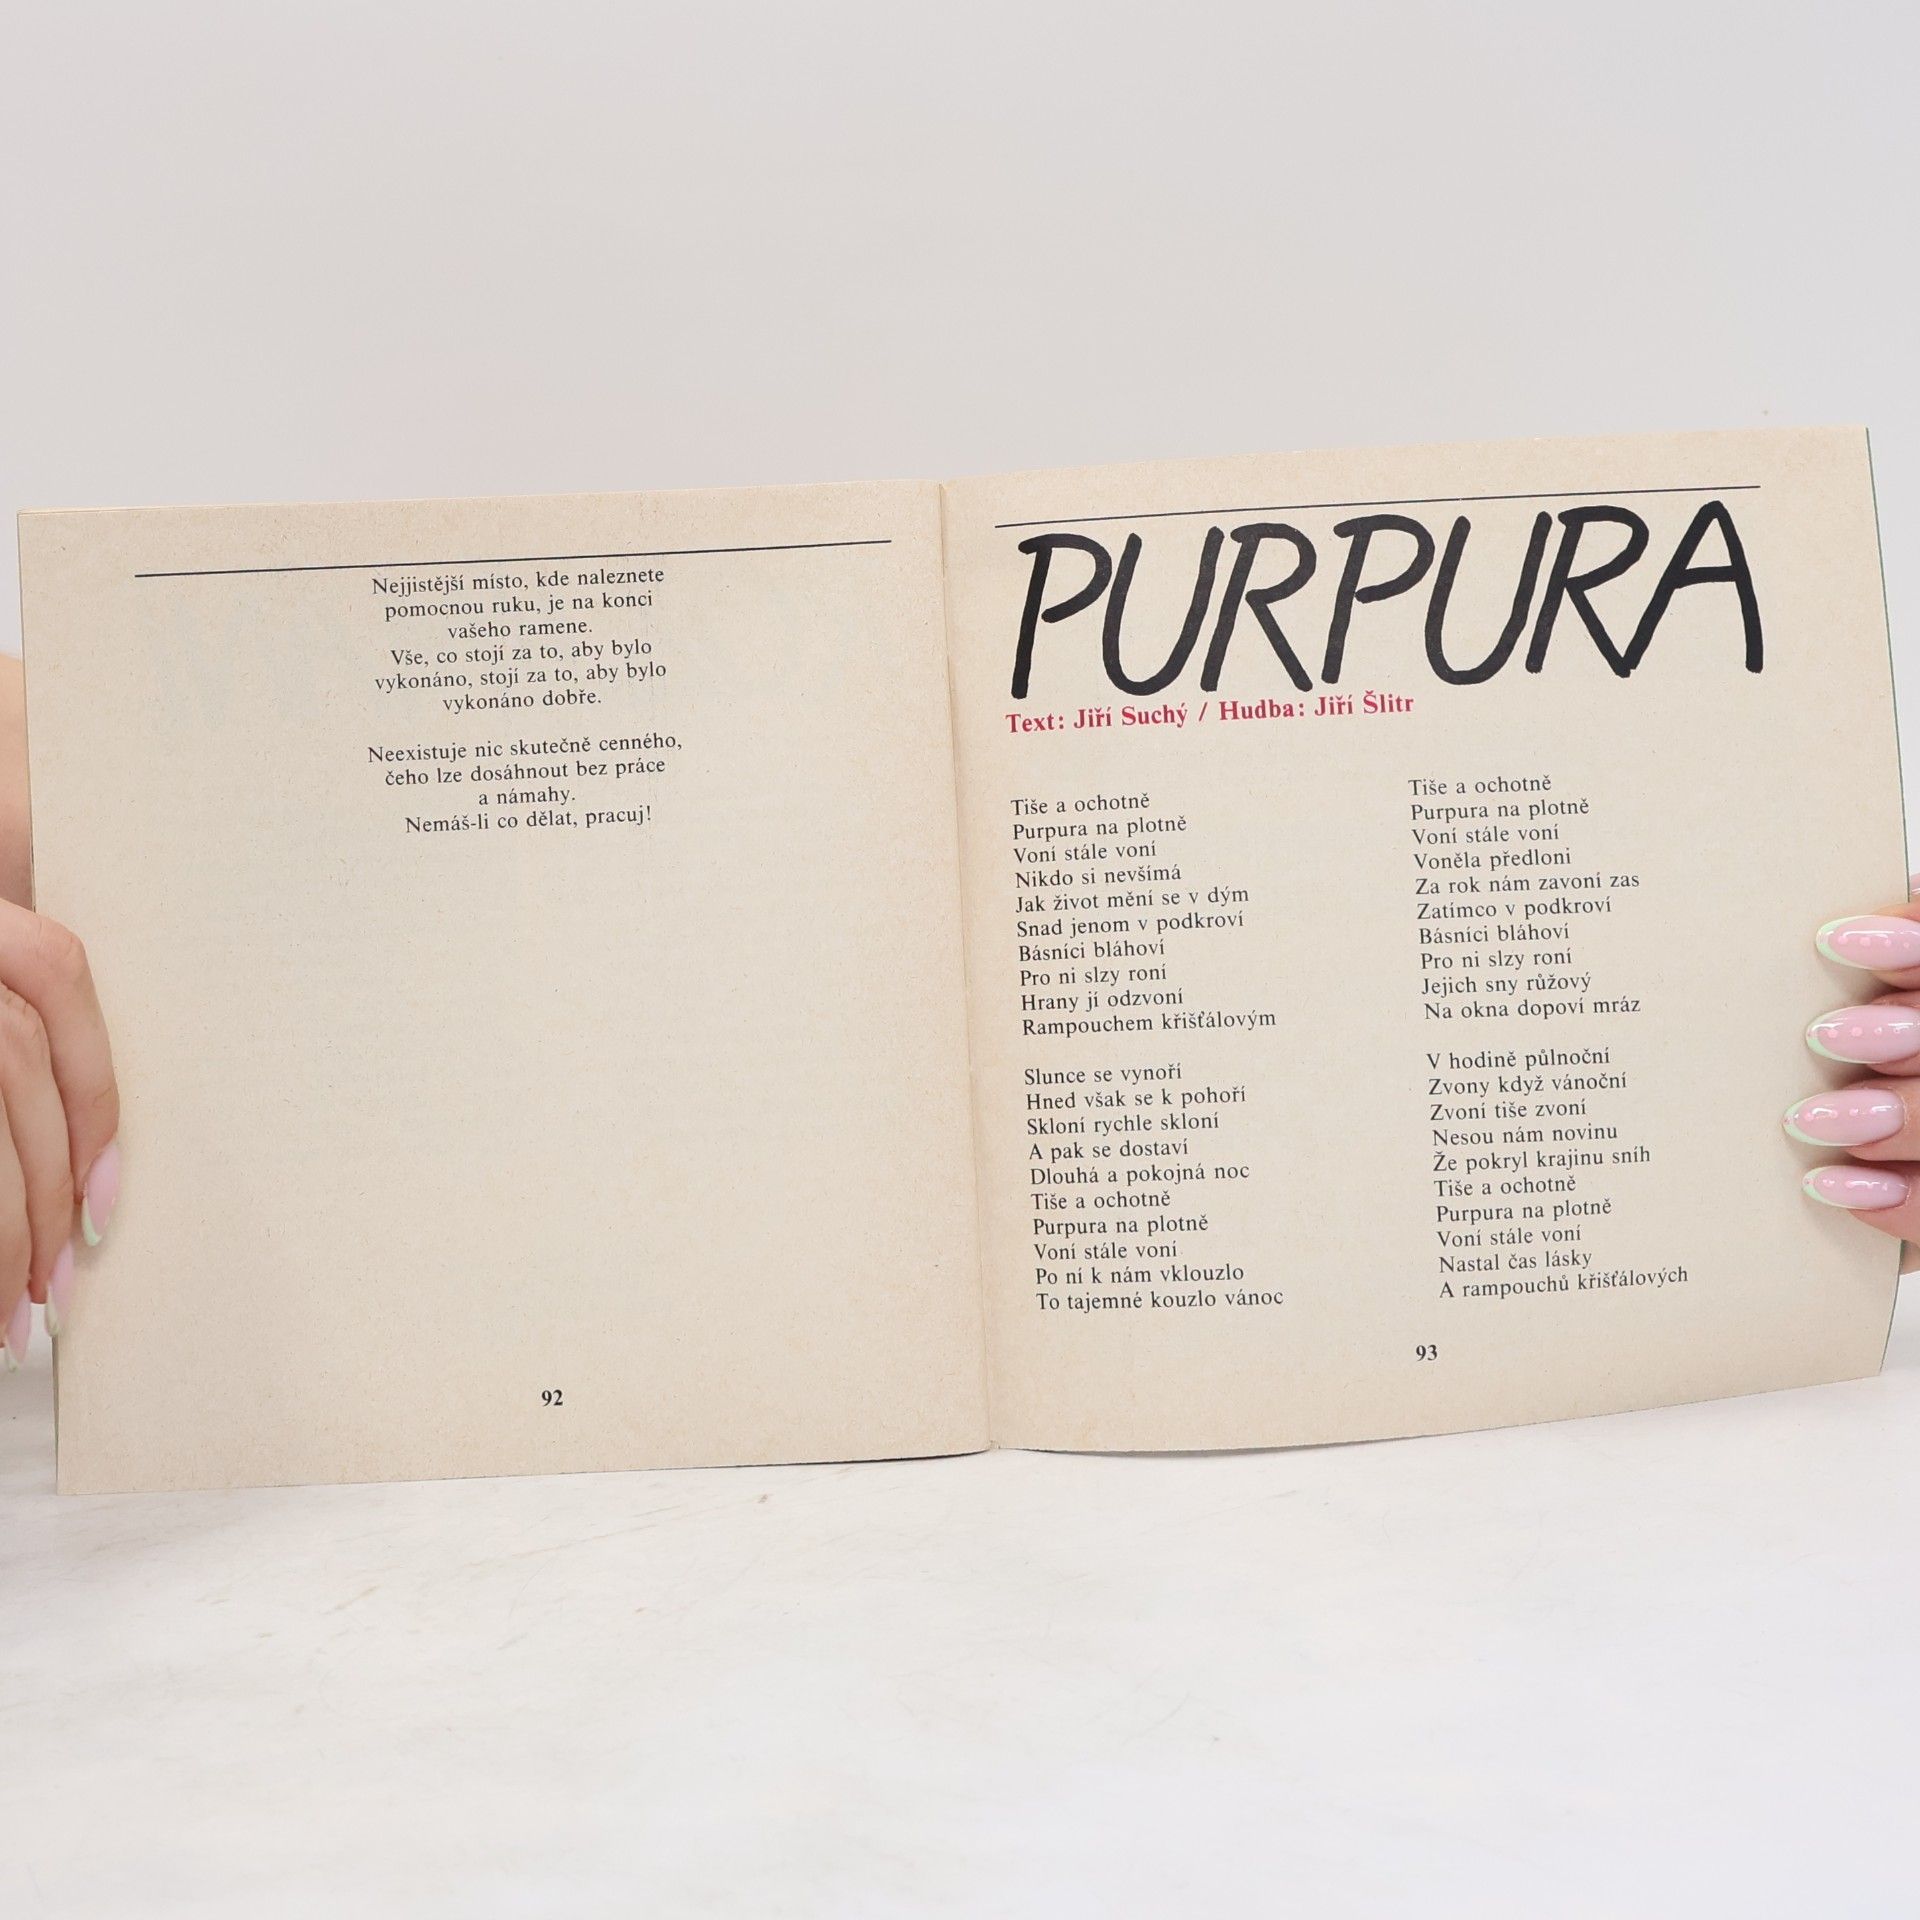 Nejjistější místo, kde naleznete
pomocnou ruku, je na konci
vašeho ramene.
Vše, co stojí za to, aby bylo
vykonáno, stojí za to, aby bylo
vykonáno dobře.
Neexistuje nic skutečně cenného,
čeho lze dosáhnout bez práce
a námahy.
Nemáš-li co dělat, pracuj!
92
PURPURA
Text: Jiří Suchý / Hudba: Jiří Šlitr
Tiše a ochotně
Purpura na plotně
Voní stále voní
Nikdo si nevšímá
Jak život mění se v dým
Snad jenom v podkroví
Básníci bláhoví
Pro ni slzy roní
Hrany jí odzvoní
Rampouchem křišťálovým
Slunce se vynoří
Hned však se k pohoří
Skloní rychle skloní
A pak se dostaví
Dlouhá a pokojná noc
Tiše a ochotně
Purpura na plotně
Voní stále voní
Po ní k nám vklouzlo
To tajemné kouzlo vánoc
Tiše a ochotně
Purpura na plotně
Voní stále voní
Voněla předloni
Za rok nám zavoní zas
Zatímco v podkroví
Básníci bláhoví
Pro ni slzy roní
Jejich sny růžový
Na okna dopoví mráz
V hodině půlnoční
Zvony když vánoční
Zvoní tiše zvoní
Nesou nám novinu
Že pokryl krajinu sníh
Tiše a ochotně
Purpura na plotně
Voní stále voní
Nastal čas lásky
A rampouchů křišťálových
93